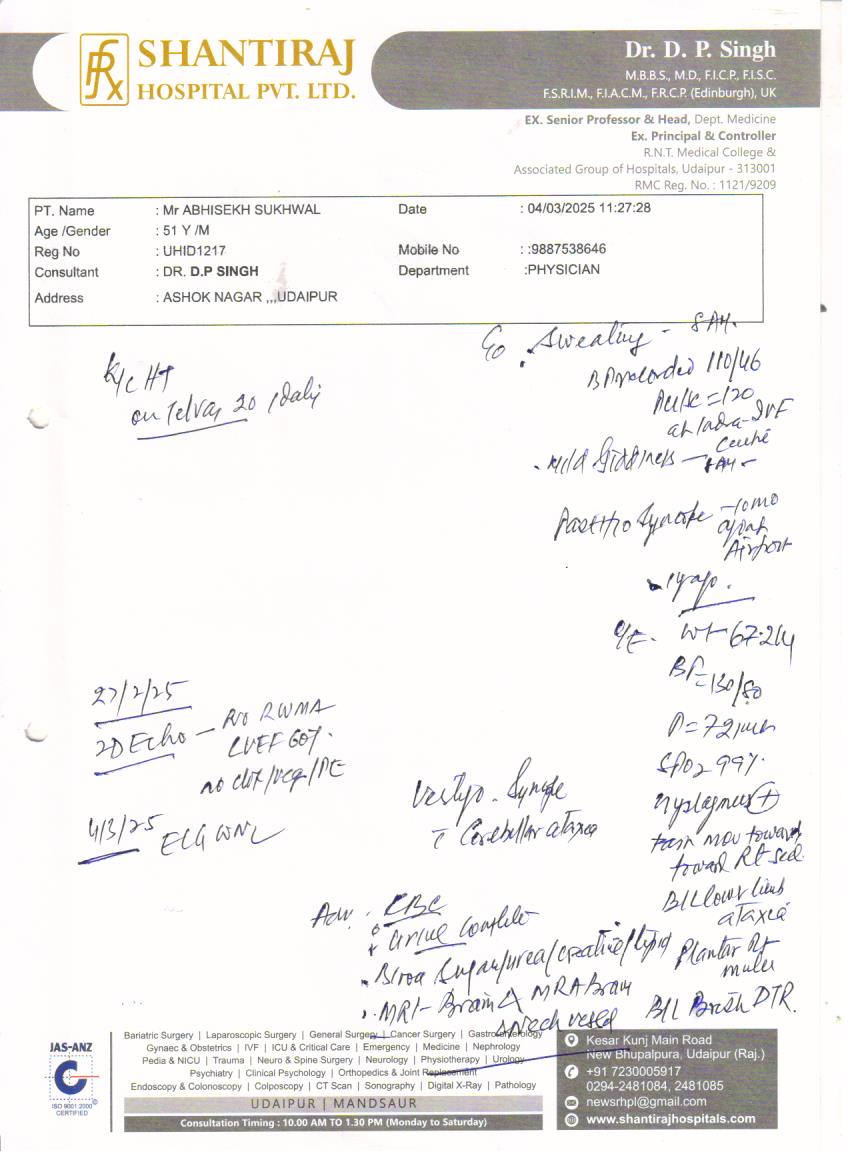 SHANTIRAJ
HOSPITAL PVT. LTD.
Dr. D. P. Singh
M.B.B.S., M.D., F.I.C.P., F.I.S.C.
F.S.R.I.M., F.I.A.C.M., F.R.C.P. (Edinburgh), UK
EX. Senior Professor & Head, Dept. Medicine
Ex. Principal & Controller
R.N.T. Medical College &
Associated Group of Hospitals, Udaipur - 313001
RMC Reg. No. : 1121/9209
PT. Name : Mr ABHISEKH SUKHWAL Date : 04/03/2025 11:27:28
Age /Gender : 51 Y /M
Reg No : UHID1217 Mobile No : :9887538646
Consultant : DR. D.P SINGH Department :PHYSICIAN
Address : ASHOK NAGAR ,,,UDAIPUR
K/c HT
on Telvas 20 1 daily
C/o Sweating - 8 AM.
BP recorded 110/46
Pulse = 120
at Indra-IVF
Centre
Mild Giddiness - 8 AM
Past H/o Syncope - 10 mo
Airport
O/E. Wt 67.2 kg
BP = 130/80
P = 72/min
SPO2 99%
Nystagmus +
toward Rt
B/L lower limb
ataxia
Plantar Rt
B/L Brisk DTR.
27/2/25
2D Echo - No RWMA
LVEF 60%
no clot/veg/PE
4/3/25 ECG WNL
Vertigo. Syncope
c Cerebellar ataxia
Adv. CBC
Urine Complete
Blood Sugar/urea/creatine/lipid
MRI - Brain & MRA Brain
& Neck vessel
Bariatric Surgery | Laparoscopic Surgery | General Surgery | Cancer Surgery | Gastroenterology
Gynaec & Obstetrics | IVF | ICU & Critical Care | Emergency | Medicine | Nephrology
Pedia & NICU | Trauma | Neuro & Spine Surgery | Neurology | Physiotherapy | Urology
Psychiatry | Clinical Psychology | Orthopedics & Joint Replacement
Endoscopy & Colonoscopy | Colposcopy | CT Scan | Sonography | Digital X-Ray | Pathology
UDAIPUR | MANDSAUR
Consultation Timing : 10.00 AM TO 1.30 PM (Monday to Saturday)
JAS-ANZ
ISO 9001:2000
CERTIFIED
Kesar Kunj Main Road
New Bhupalpura, Udaipur (Raj.)
+91 7230005917
0294-2481084, 2481085
newsrhpl@gmail.com
www.shantirajhospitals.com